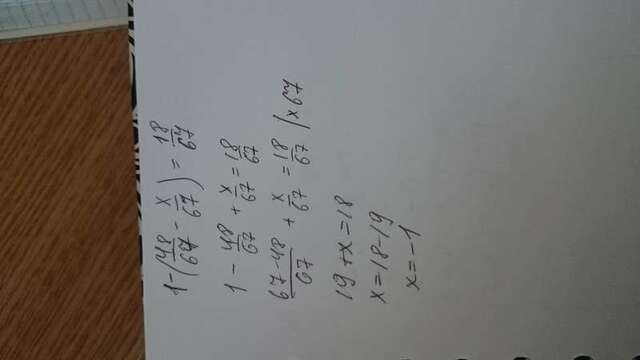 1-(48/67 - x/67) = 18/67
1 - 48/67 + x/67 = 18/67
67-48/67 + x/67 = 18/67 | x67
19 + x = 18
x = 18-19
x = -1